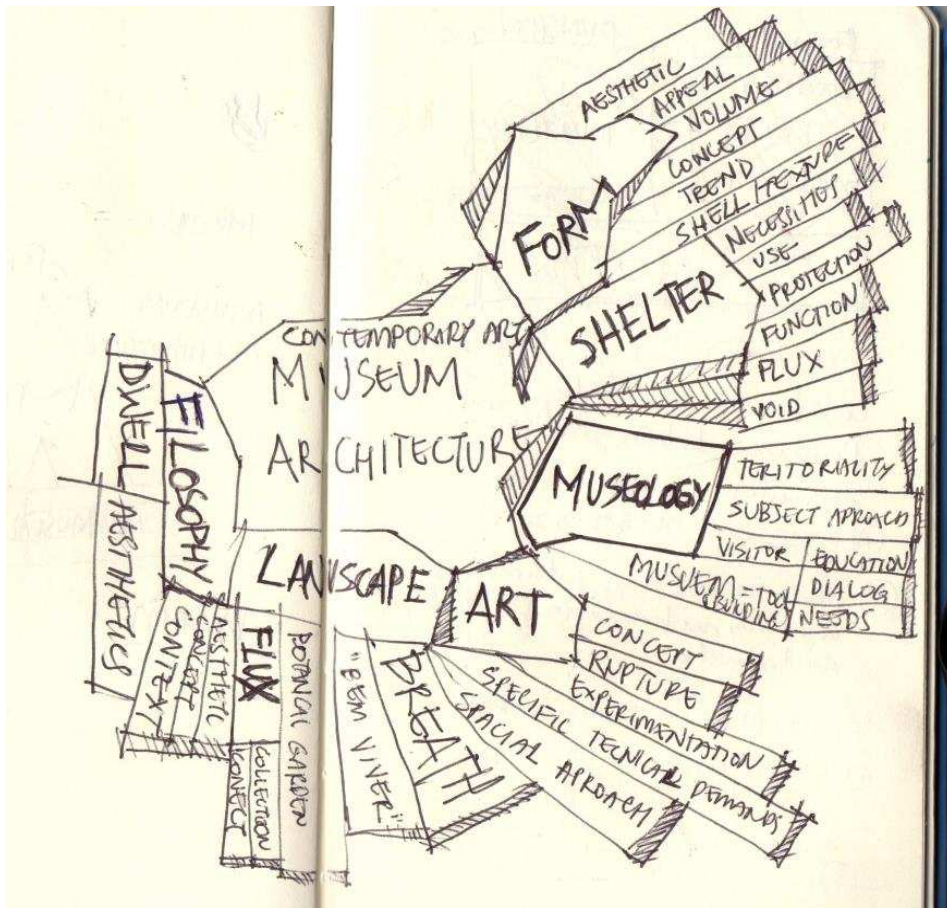 CONTEMPORARY ART
MUSEUM
ARCHITECTURE
FORM
AESTHETIC
APPEAL
VOLUME
CONCEPT
TREND
SHELL/TEXTURE
SHELTER
NECESSITIES
USE
PROTECTION
FUNCTION
FLUX
VOID
MUSEOLOGY
TERITORIALITY
SUBJECT APROACH
VISITOR
EDUCATION
DIALOG
NEEDS
MUSUEM = TOOL
& BUILDING
ART
CONCEPT
RUPTURE
EXPERIMENTATION
SPECIFIC TECNICAL DEMANDS
SPACIAL APROACH
LANDSCAPE
BREATH
"BEM VIVER"
BOTANICAL GARDEN
FLUX
COLLECTION
CONECT
AESTHETIC
CONCEPT
CONTEXT
FILOSOPHY
DWELL
AESTHETICS